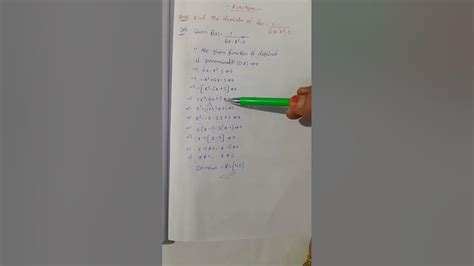 - Functions -
Find the domain of f(x) = 1/(6x-x²-5)
Sol: Given f(x) = 1/(6x-x²-5)
∵ The given function is defined
if denominator (Dr) ≠ 0
⇒ 6x-x²-5 ≠ 0
⇒ -x²+6x-5 ≠ 0
⇒ -[x²-6x+5] ≠ 0
⇒ x²-6x+5
⇒ x²-x-5x+5 ≠ 0
⇒ x(x-1)-5(x-1) ≠ 0
⇒ (x-1)[x-5] ≠ 0
⇒ x-1 ≠ 0, x-5 ≠ 0
⇒ x ≠ 1, x ≠ 5
Domain = R-{1,5}